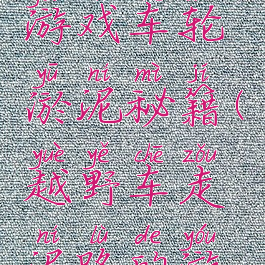 游戏车轮
yū ní mì jí
淤泥秘籍(
yuè yě chē zǒu
越野车走
ní lù de yóu
泥路的游